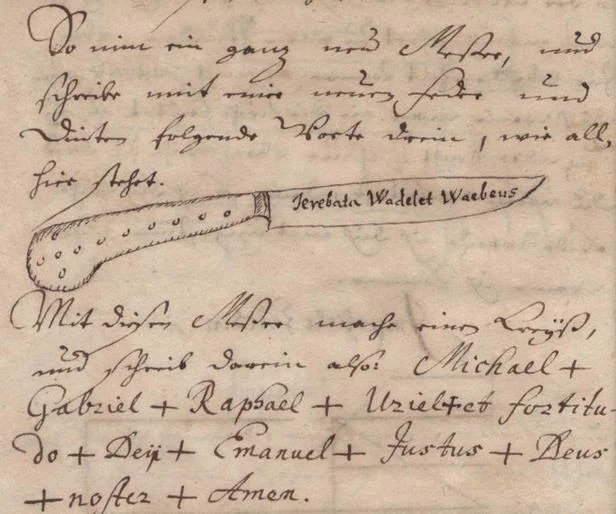 So nim ein ganz neü Meßer, und
schreibe mit einer neuen feder und
Dinten folgende Worte drein, wie all,
hier stehet.
Jerebata Wadelet Waebeus
Mit diesen Meßer mache einen Kreÿß,
und schreib darein also: Michael +
Gabriel + Raphael + Uriel + et fortitu-
do + Deij + Emanuel + Justus + Deus
+ noster + Amen.